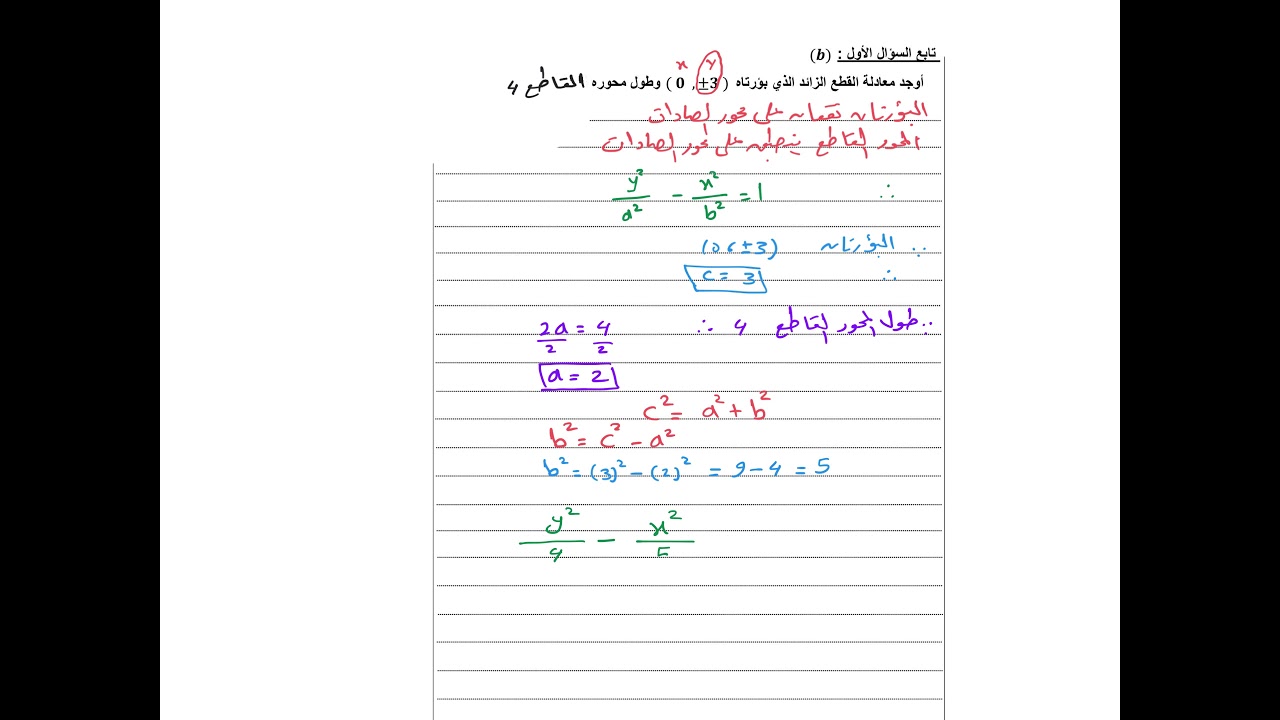 تابع السؤال الأول : (b)
x y
أوجد معادلة القطع الزائد الذي بؤرتاه ( 0 , ±3 ) وطول محوره القاطع 4
البؤرتان تقعان على محور الصادات
المحور القاطع ينطبق على محور الصادات
∴ y²/a² - x²/b² = 1
∵ البؤرتان (0 , ±3)
∴ c = 3
∵ طول المحور القاطع 4 ∴ 2a/2 = 4/2
a = 2
c² = a² + b²
b² = c² - a²
b² = (3)² - (2)² = 9 - 4 = 5
y²/4 - x²/5